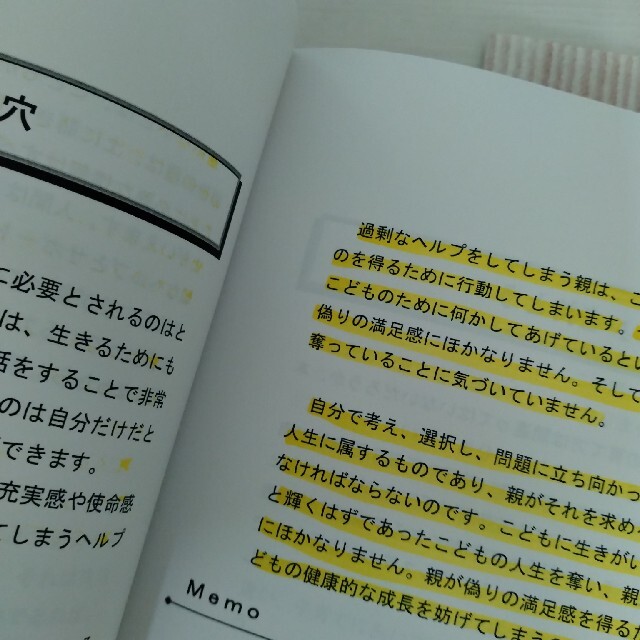 穴
に必要とされるのはと
は、生きるためにも
話をすることで非常
のは自分だけだと
できます。
充実感や使命感
てしまうヘルプ
過剰なヘルプをしてしまう親は、こ
のを得るために行動してしまいます。
こどものために何かしてあげているとい
偽りの満足感にほかなりません。そして
奪っていることに気づいていません。
自分で考え、選択し、問題に立ち向かっ
人生に属するものであり、親がそれを求め
なければならないのです。こどもに生きがい
と輝くはずであったこどもの人生を奪い、親
にほかなりません。親が偽りの満足感を得るた
どもの健康的な成長を妨げてしま
Memo